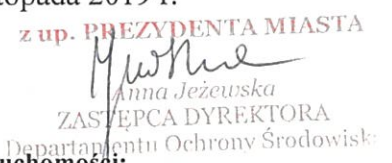 opada 2019 r.
z up. PREZYDENTA MIASTA
Anna Jeżewska
ZASTĘPCA DYREKTORA
Departamentu Ochrony Środowisk
uchomości: